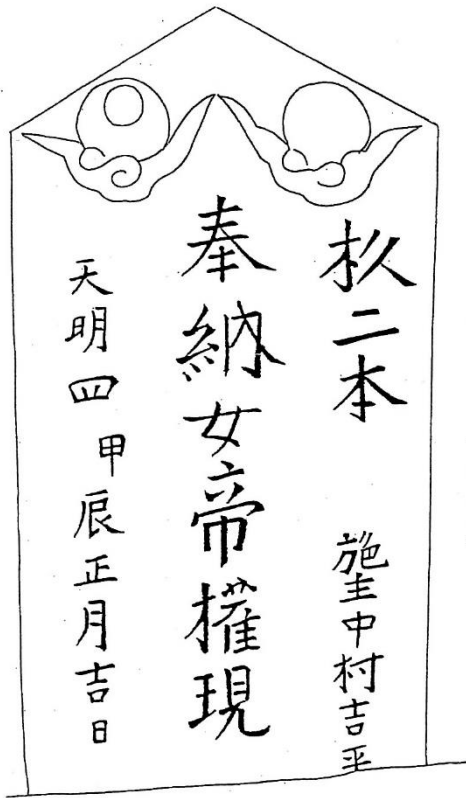 杦二本　施主中村吉平
奉納女帝權現
天明四　甲辰正月吉日